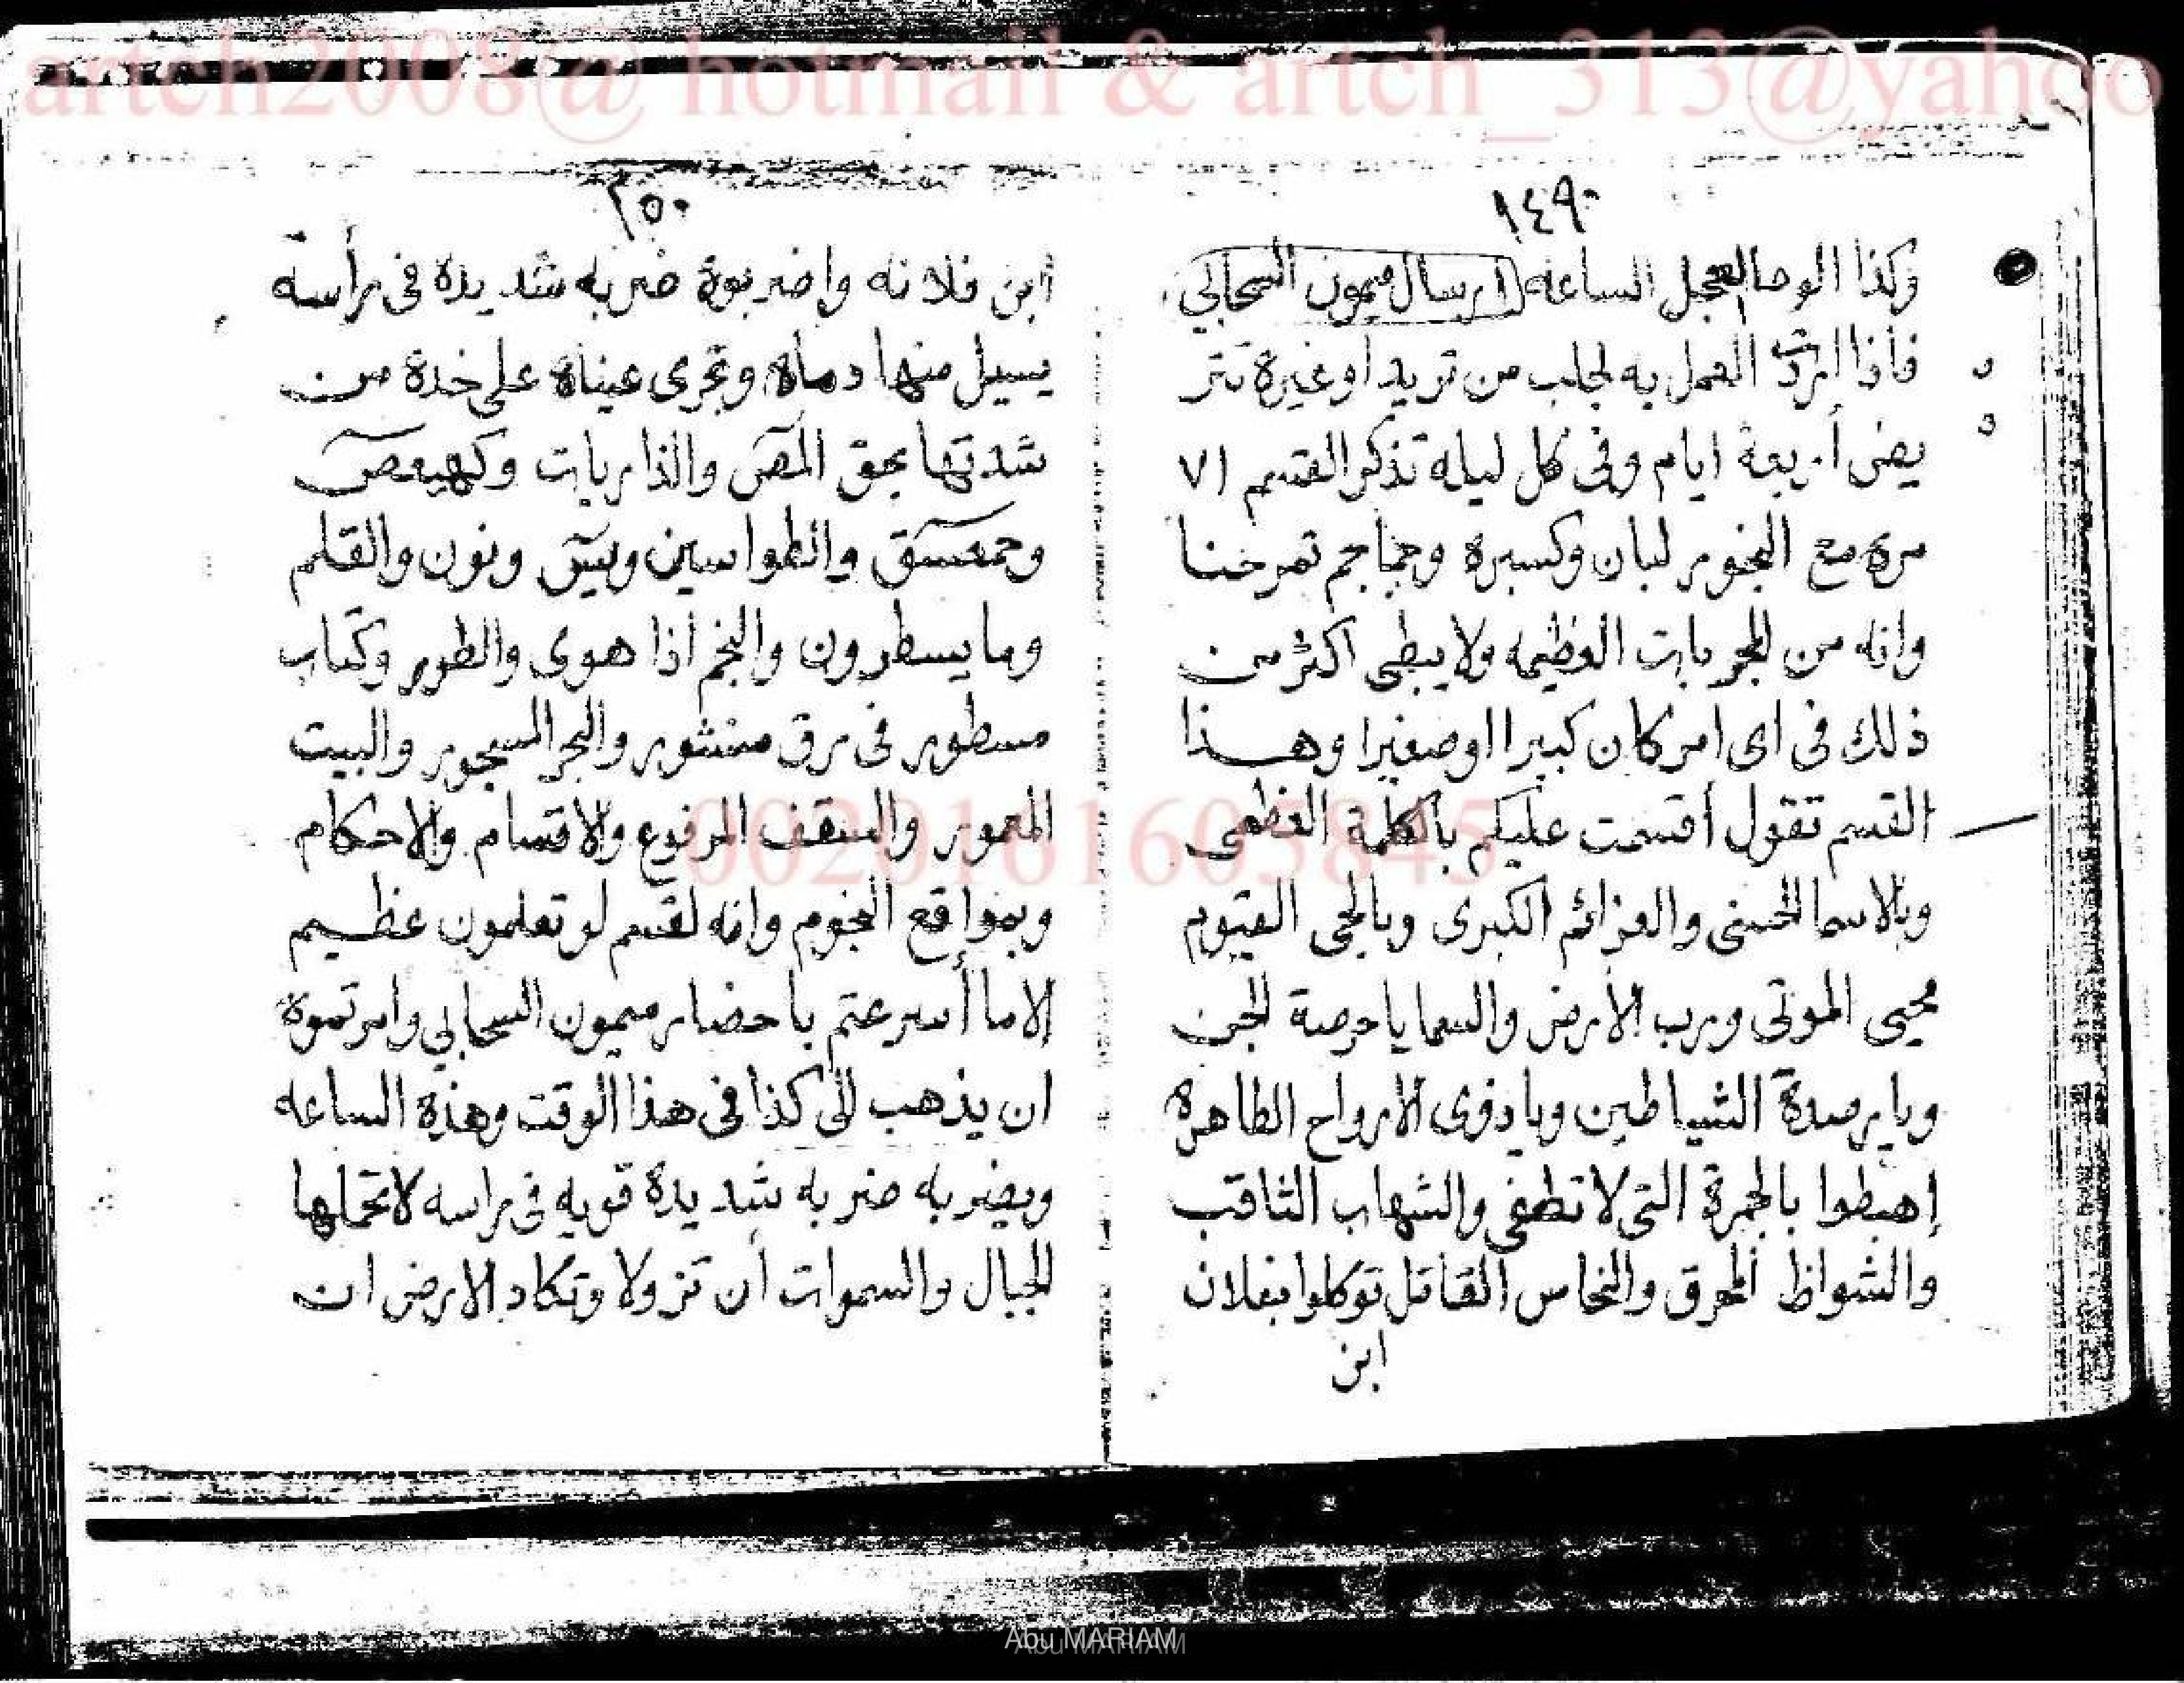 artch2008@ hotmail & artch_313@yahoo
١٤٩
وكذا الوحا العجل الساعه ارسال ميمون السحابي
فاذا اردت العمل به لجلب من تريد او غيرة تتر
يض أربعة ايام وفى كل ليله تذكر القسم ٧١
مرة مع البخور لبان وكسبرة وجماجم تمرحنا
وانه من المجربات العظيمه ولا يبطى اكثر من
ذلك فى اى امر كان كبيرا او صغيرا وهذا
القسم تقول أقسمت عليكم بالكلمة العظمى
وبالاسما الحسنى والعزائم الكبرى وبالحى القيوم
محيى الموتى ورب الأرض والسما يا رصة الجن
ويا رصدة الشياطين ويا ذوى الارواح الطاهرة
إهبطوا بالجمرة التى لا تطفى والشهاب الثاقب
والشواظ المحرق والنحاس القاتل توكلوا بفلان
ابن
٢٥٠
ابن فلانه واضربوة ضربه شديدة فى رأسه
يسيل منها دماه وتجرى عيناه على خدة من
شدتها بحق المص والذاريات وكهيعص
وحمعسق والطواسين ويس ونون والقلم
وما يسطرون والنجم اذا هوى والطور وكتاب
مسطور فى رق منشور والبحر المسجور والبيت
المعمور والسقف المرفوع والاقسام والاحكام
وبمواقع النجوم وانه لقسم لو تعلمون عظيم
الا ما أسرعتم باحضار ميمون السحابي وامرتموة
ان يذهب الى كذا فى هذا الوقت وهذة الساعه
ويضربه ضربه شديدة قويه فى راسه لا تحملها
الجبال والسموات أن تزولا وتكاد الارض ان
0020161605845
Abu MARIAM